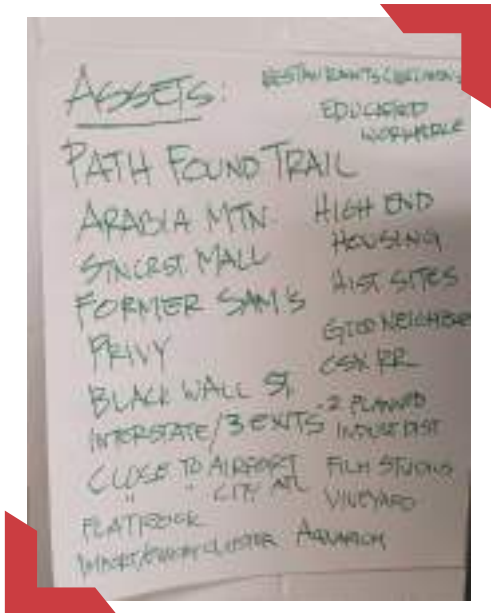 ASSETS:
PATH FOUND TRAIL
ARABIA MTN.
STNCRST. MALL
FORMER SAM'S
PRIVY
BLACK WALL ST.
INTERSTATE/3 EXITS
CLOSE TO AIRPORT
" " CITY ATL
FLATROCK
EDUCATED
WORKFORCE
HIGH END
HOUSING
HIST. SITES
GOOD NEIGHBORS
CSX RR
-2 PLANNED
DIST
FILM STUDIOS
VINEYARD